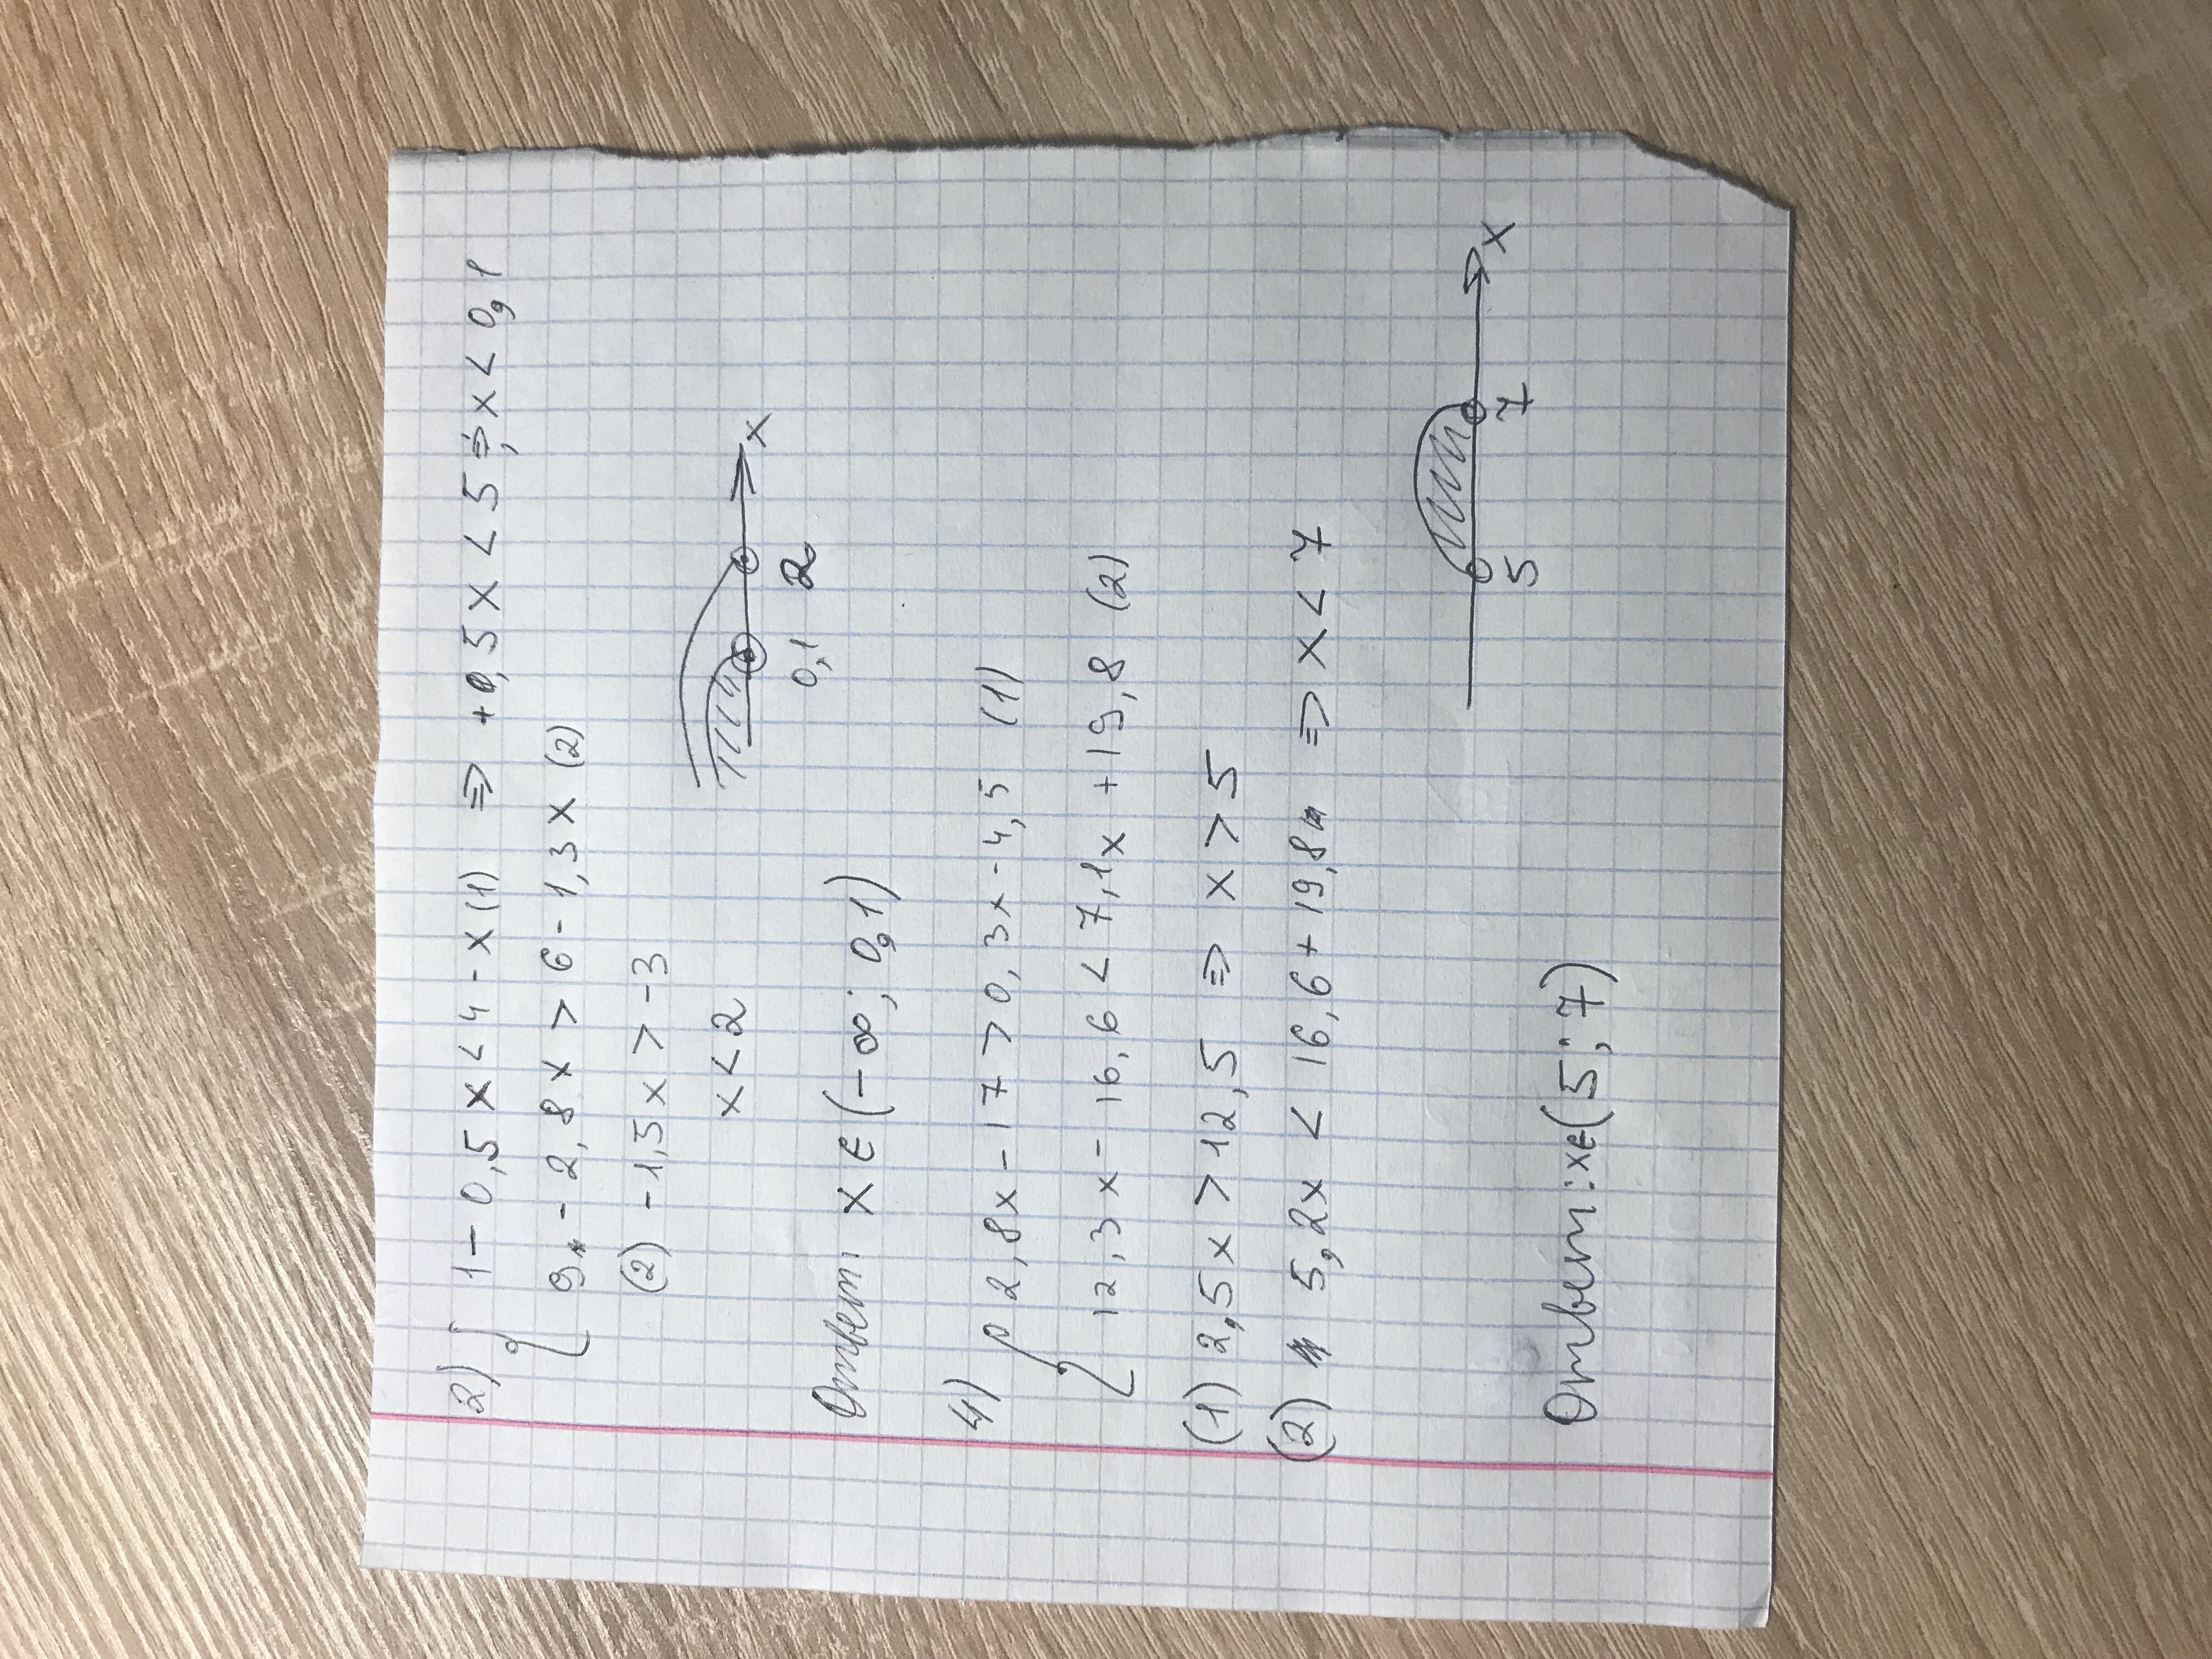 2) { 1 - 0,5x < 4 - x (1) => +0,5x < 5 => x < 0,1
9 - 2,8x > 6 - 1,3x (2)
(2) -1,5x > -3
x < 2
0,1 2 x
Ответ: x ∈ (-∞; 0,1)
4) { 2,8x - 17 > 0,3x - 4,5 (1)
12,3x - 16,6 < 7,1x + 19,8 (2)
(1) 2,5x > 12,5 => x > 5
(2) 5,2x < 16,6 + 19,8 => x < 7
5 7 x
Ответ: x∈(5; 7)